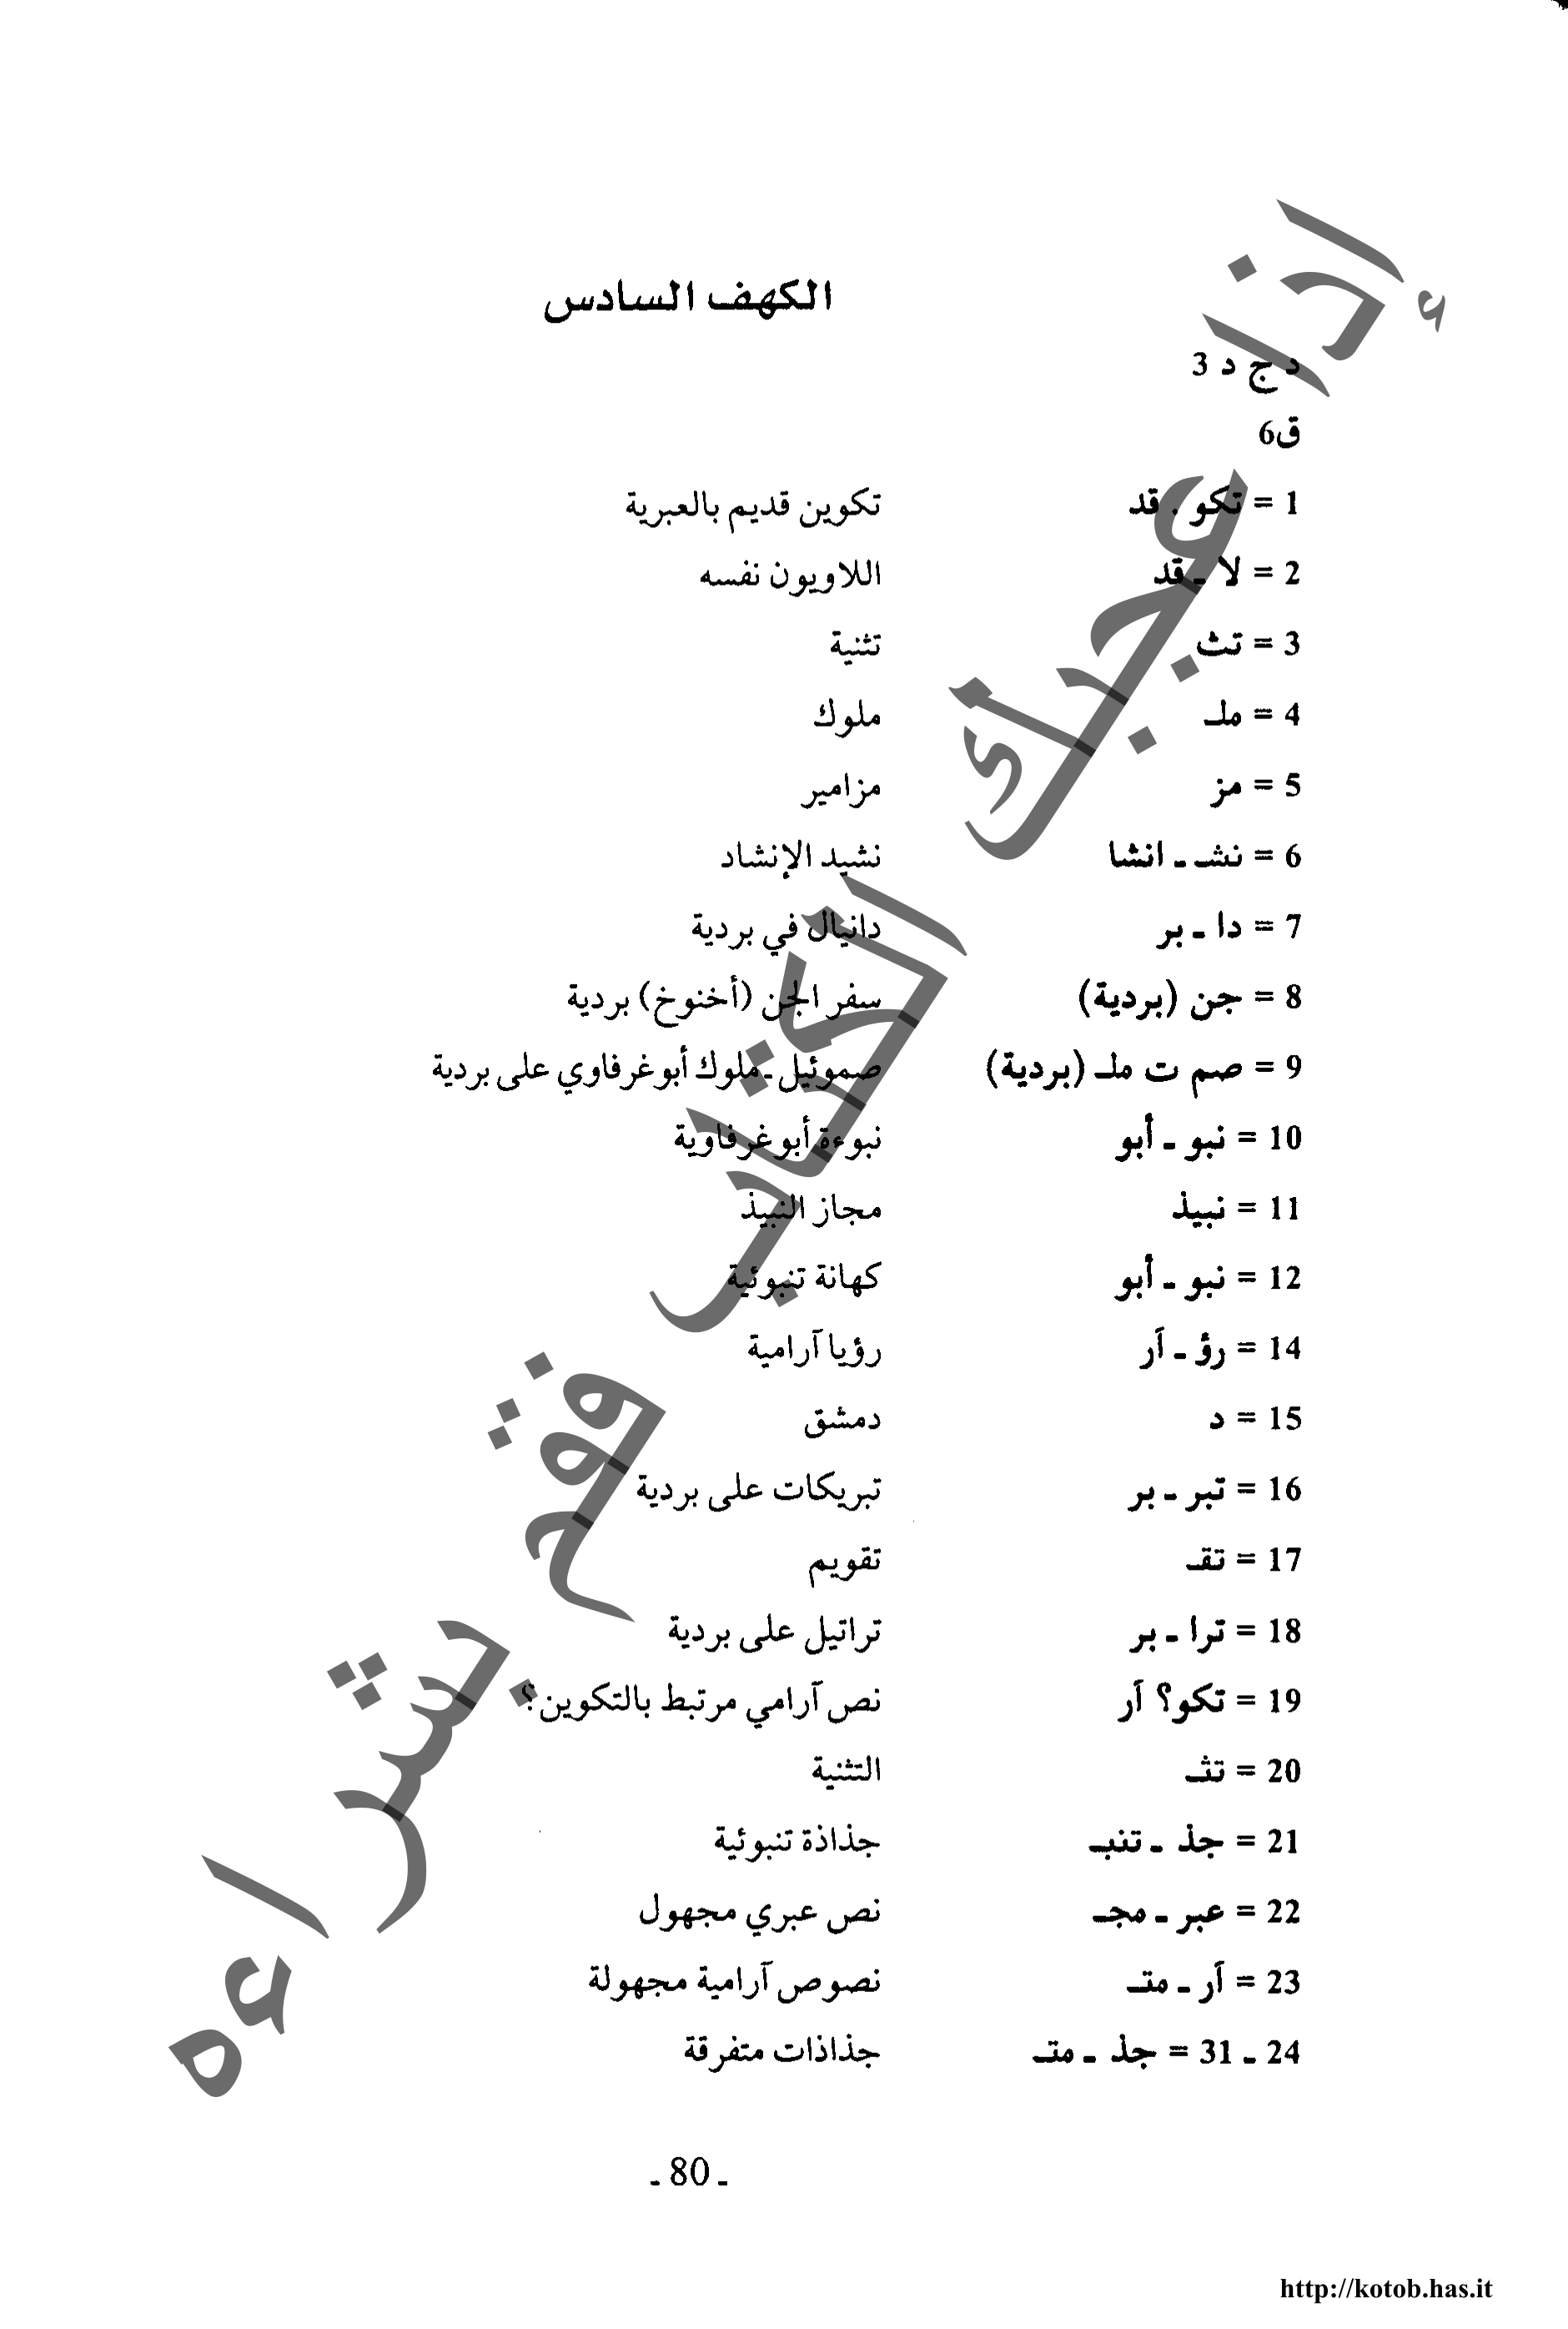 الكهف السادس
د ج د 3
ق6
1 = تكو . قد تكوين قديم بالعبرية
2 = لا ـ قد اللاويون نفسه
3 = تث تثنية
4 = ملـ ملوك
5 = مز مزامير
6 = نشـ ـ انشا نشيد الإنشاد
7 = دا ـ بر دانيال في بردية
8 = جن (بردية) سفر الجن (أخنوخ) بردية
9 = صم ت ملـ (بردية) صموئيل ـ ملوك أبوغرفاوي على بردية
10 = نبو ـ أبو نبوءة أبوغرفاوية
11 = نبيذ مجاز النبيذ
12 = نبو ـ أبو كهانة تنبوئية
14 = رؤ ـ آر رؤيا آرامية
15 = د دمشق
16 = تبر ـ بر تبريكات على بردية
17 = تقـ تقويم
18 = ترا ـ بر تراتيل على بردية
19 = تكو؟ آر نص آرامي مرتبط بالتكوين؟
20 = تثـ التثنية
21 = جذ ـ تنبـ جذاذة تنبوئية
22 = عبر ـ مجـ نص عبري مجهول
23 = آر ـ متـ نصوص آرامية مجهولة
24 ـ 31 = جذ ـ متـ جذاذات متفرقة
ـ 80 ـ
http://kotob.has.it
إذا أعجبك الكتاب فقم بشراءه